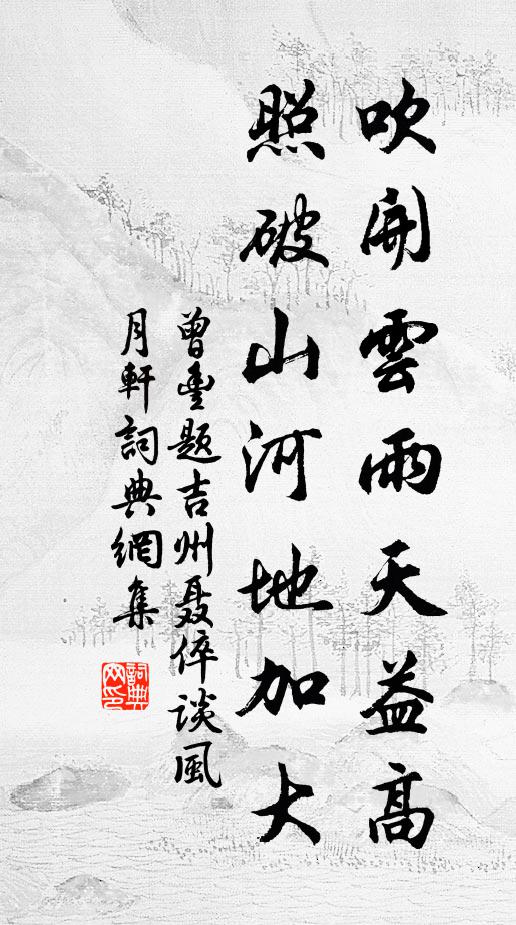 吹開雲雨天益高
照破山河地加大
曾豊題吉州聶倅談風
月軒詞典網集
詞典
网印